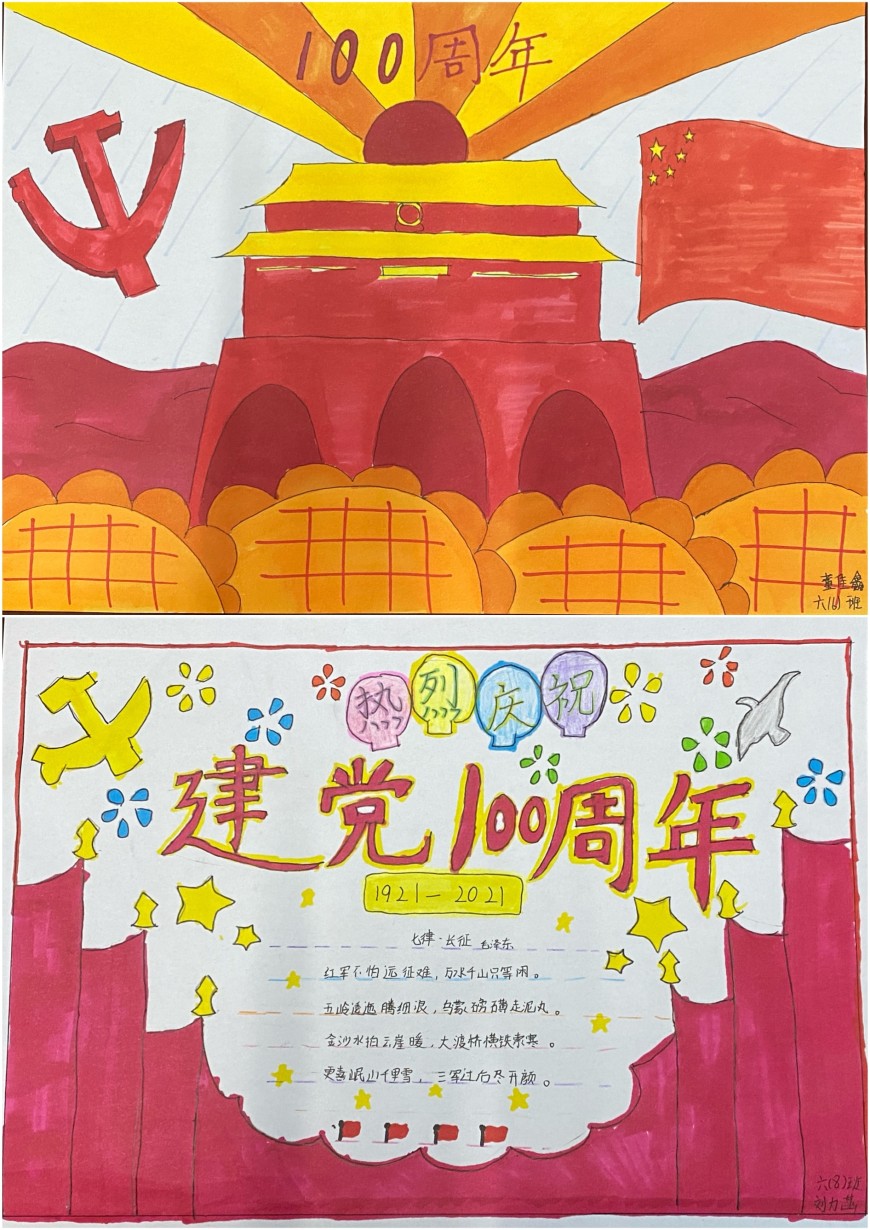 100周年
六(6)班
热烈庆祝
建党100周年
1921-2021
七律·长征 毛泽东
红军不怕远征难，万水千山只等闲。
五岭逶迤腾细浪，乌蒙磅礴走泥丸。
金沙水拍云崖暖，大渡桥横铁索寒。
更喜岷山千里雪，三军过后尽开颜。
六(8)班